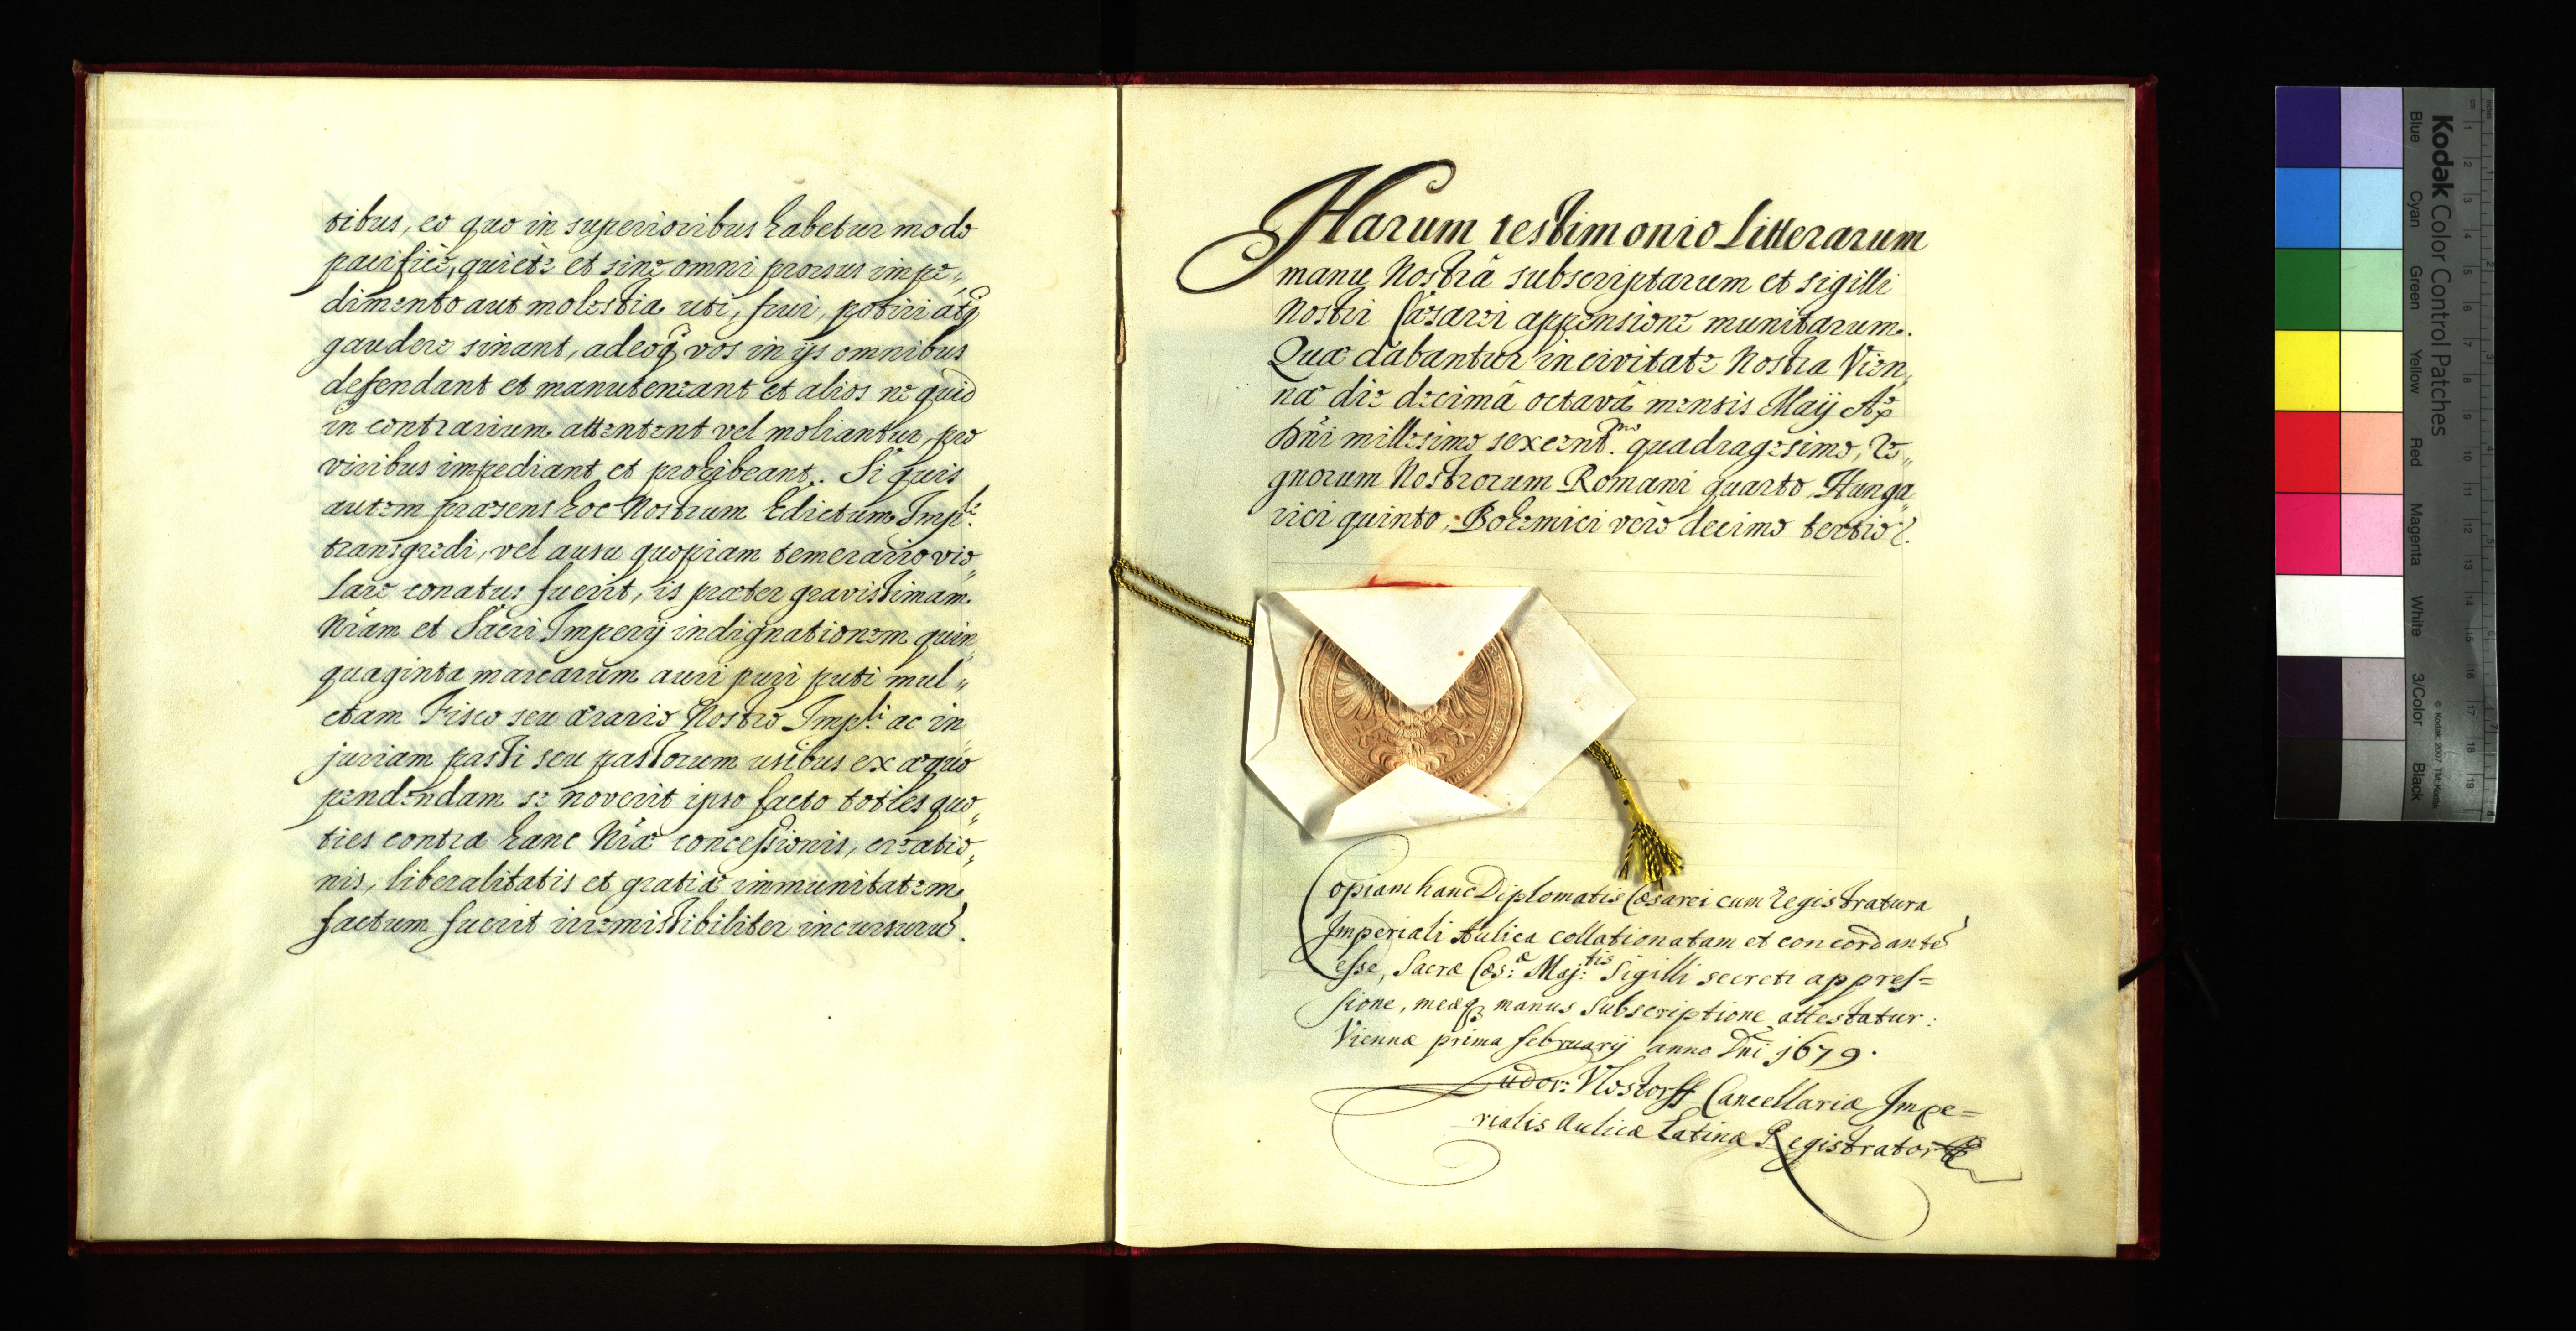 tibus, eo quo in superioribus habetur modo
pacificè, quietè et sine omni prorsus impe„
dimento aut molestia uti, frui, potiri atq̃
gaudere sinant, adeoq̃ vos in ijs omnibus
defendant et manuteneant et alios ne quid
in contrarium attentent vel moliantur, pro
viribus impediant et prohibeant. Si quis
autem præsens hoc Nostrum Edictum Imp:le
transgredi, vel ausu quopiam temerario vio„
lare conatus fuerit, is præter gravissimam
Nr̃am et Sacri Imperij indignationem quin„
quaginta marcarum auri puri puti mul„
ctam Fisco seu ærario Nostro Imp:li ac in„
juriam passi seu passorum usibus ex æquo
pendendam se noverit ipso facto toties quo„
ties contra hanc Nr̃æ concessionis, creatio„
nis, liberalitatis et gratiæ immunitatem
factum fuerit irremissibiliter incursurũ.
Harum testimonio Litterarum
manu Nostrâ subscriptarum et sigilli
Nostri Cæsarei appensione munitarum.
Quæ dabantur in civitate Nostra Vien„
næ die decimâ octavâ mensis Maij Ao
Dñi millesimo sexcent.mo quadragesimo, Re„
gnorum Nostrorum Romani quarto, Hunga„
rici quinto, Bohemici verò decimo tertio.
Copiam hanc Diplomatis Cæsarei cum Registratura
Imperiali Aulica collationatam et concordantẽ
esse, Sacræ Cæs:æ Maj:tis Sigilli secreti appres=
sione, meæq3 manus Subscriptione attestatur:
Viennæ prima februarij anno Dñi 1679.
Ludov: Vlostorff Cancellariæ Impe=
rialis Aulicæ Latinæ Registrator
Kodak Color Control Patches
© Kodak, 2007 TM: Kodak
Blue Cyan Green Yellow Red Magenta White 3/Color Black
1 2 3 4 5 6 7 8 9 10 11 12 13 14 15 16 17 18 19